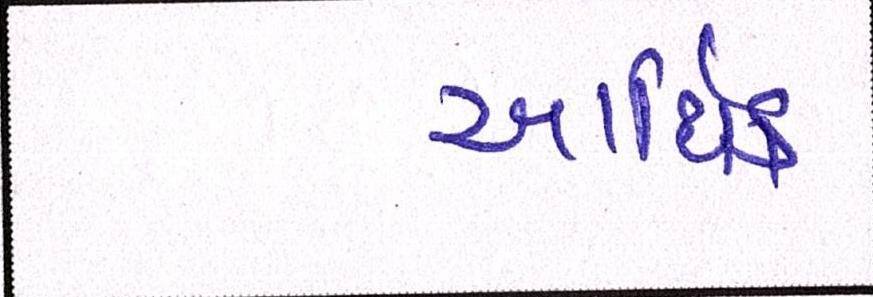 આર્થિક